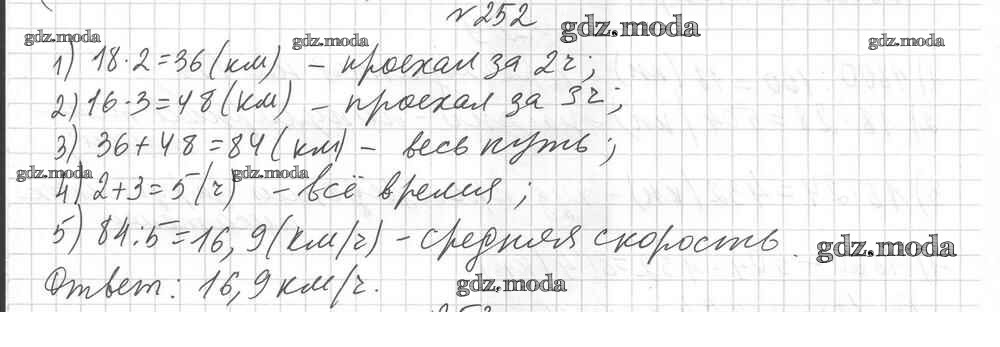 №252
gdz.moda gdz.moda gdz.moda gdz.moda
1) 18·2=36(км) – проехал за 2ч;
2) 16·3=48(км) – проехал за 3ч;
3) 36+48=84(км) – весь путь;
gdz.moda gdz.moda
4) 2+3=5(ч) – всё время;
5) 84:5=16,9(км/ч) – средняя скорость.
gdz.moda
Ответ: 16,9 км/ч.
gdz.moda